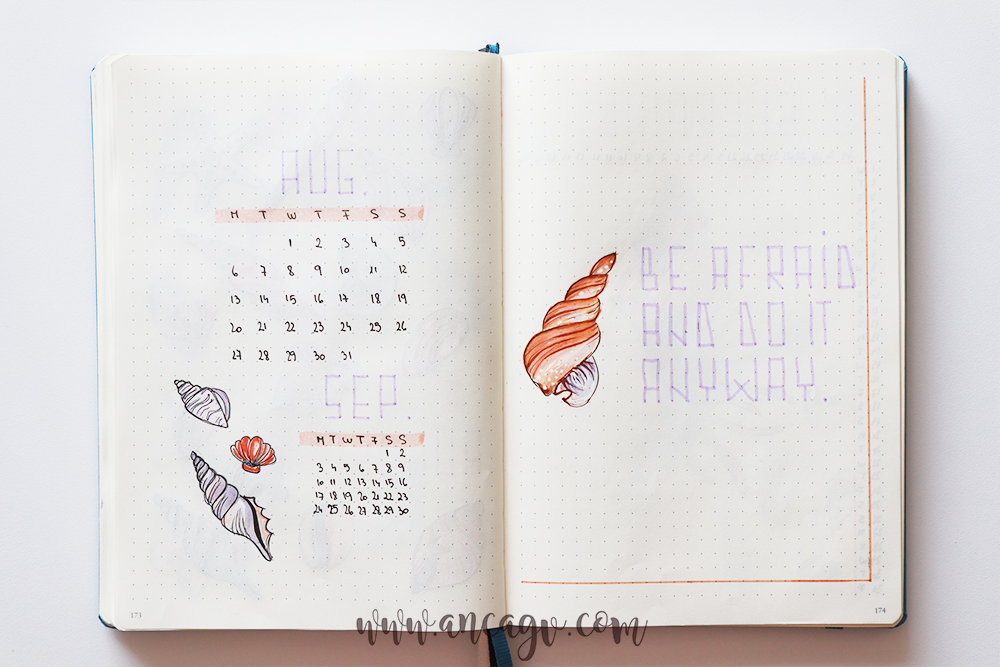 AUG.
M T W T F S S
1 2 3 4 5
6 7 8 9 10 11 12
13 14 15 16 17 18 19
20 21 22 23 24 25 26
27 28 29 30 31
SEP.
M T W T F S S
1 2
3 4 5 6 7 8 9
10 11 12 13 14 15 16
17 18 19 20 21 22 23
24 25 26 27 28 29 30
173
BE AFRAID
AND DO IT
ANYWAY.
174
www.ancagv.com